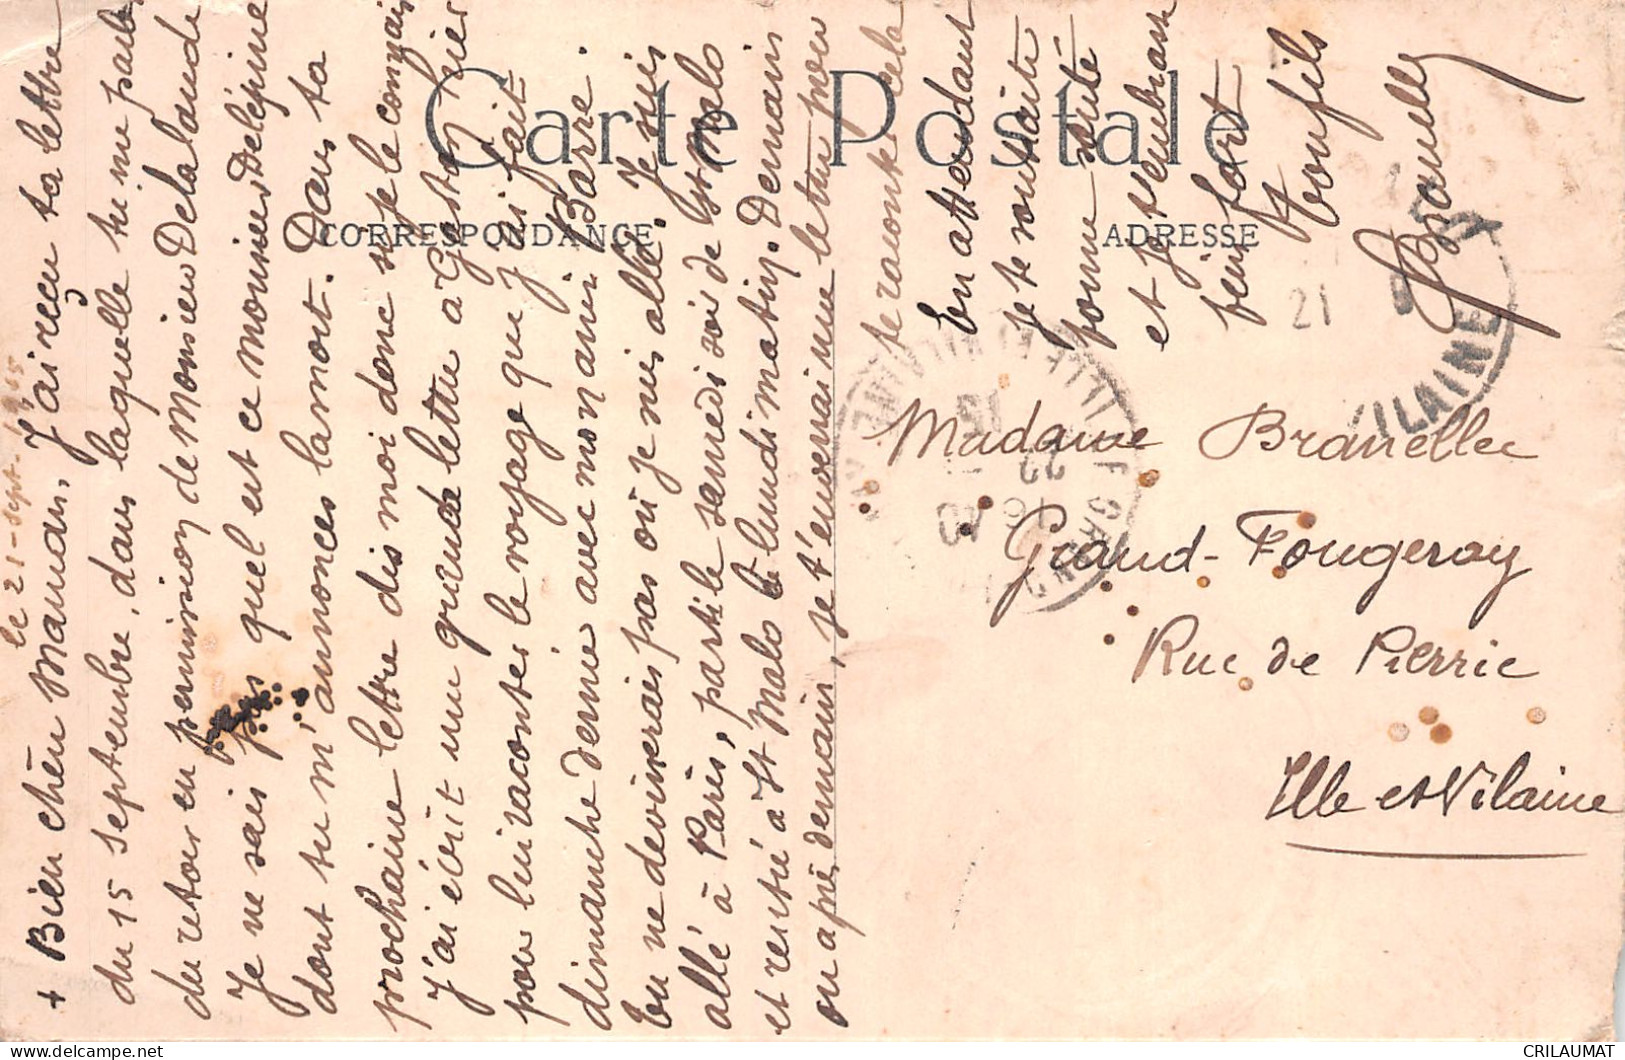 Carte Postale
CORRESPONDANCE
ADRESSE
le 21 - Sept -
+ Bien chère Maman, J'ai reçu ta lettre
du 15 septembre, dans laquelle tu me parles
du retour en permission de Monsieur Delalande
Je ne sais pas quel est ce monsieur Delépine
dont tu m'annonces la mort. Dans ta
prochaine lettre dis moi donc si je le connais
J'ai écrit une grande lettre à Gaston hier
pour lui raconter le voyage que j'ai fait
dimanche dernier avec mon ami Barre.
Tu ne devinerais pas où je suis allé. Je suis
allé à Paris, parti le samedi soir de St Malo
et rentré à St Malo le lundi matin. Demain
ou après demain, je t'enverrai une lettre pour
te raconter cela
En attendant
Je te souhaite
bonne santé
et je t'embrasse
bien fort
Ton fils
GBranellec
Madame Branellec
Grand-Fougeray
Rue de Pierric
Ille et Vilaine
21
VILAINE
ILLE ET VILAINE
CRILAUMAT